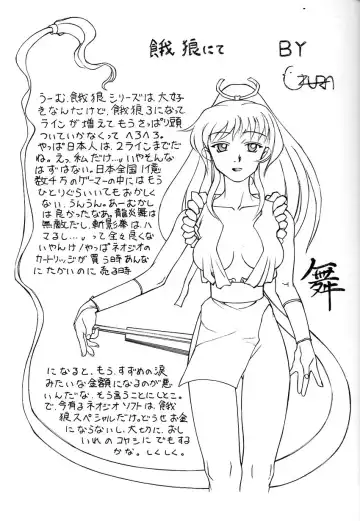 餓狼にて
BY
うーむ、餓狼シリーズは大好
きなんだけど、餓狼3になって
ラインが増えてもうさっぱり頭
ついていかなくって へ3へ3。
やっぱ日本人は、2ラインまでだ
ね。えっ、私だけ…。いやそんな
はずはない。日本全国1億
数千万のゲーマーの中にはもう
ひとりぐらいいてもおかしく
ない、うんうん。あーむかし
は良かったなあ。龍炎舞は
無敵だし、斬影拳は、ハ
マるし…。って全々良くな
いやんけ!やっぱネオジオの
カートリッジが買う時あんな
にたかいのに売る時
になると、もう、すずめの涙
みたいな金額になるのが悪
いんだな、そう言うことにしとこ。
で、今有るネオジオソフトは、餓
狼スペシャルだけ。どうせお金
にならないし、大切に、おし
いれのコヤシにでもする
かな。しくしく。
舞